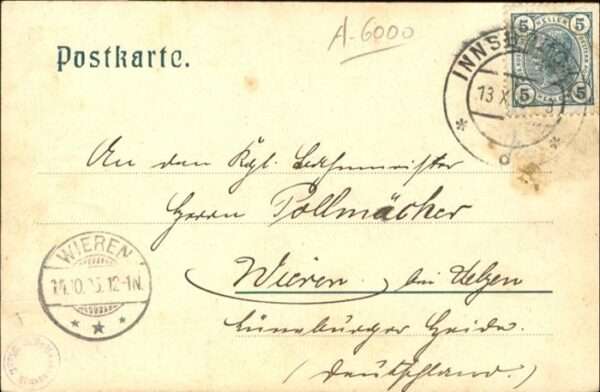 A-6000
Postkarte.
5 HELLER 5
5 5
INNSBRUCK
13 X
An den Kgl. Bahnmeister
Herrn Pollmächer
Wieren bei Uelzen
Lüneburger Heide.
(Deutschland.)
WIEREN
14.10.05.12-1N.